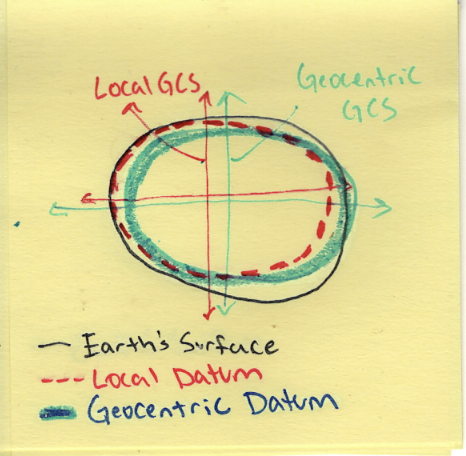 Local GCS
Geocentric
GCS
Earth's Surface
Local Datum
Geocentric Datum